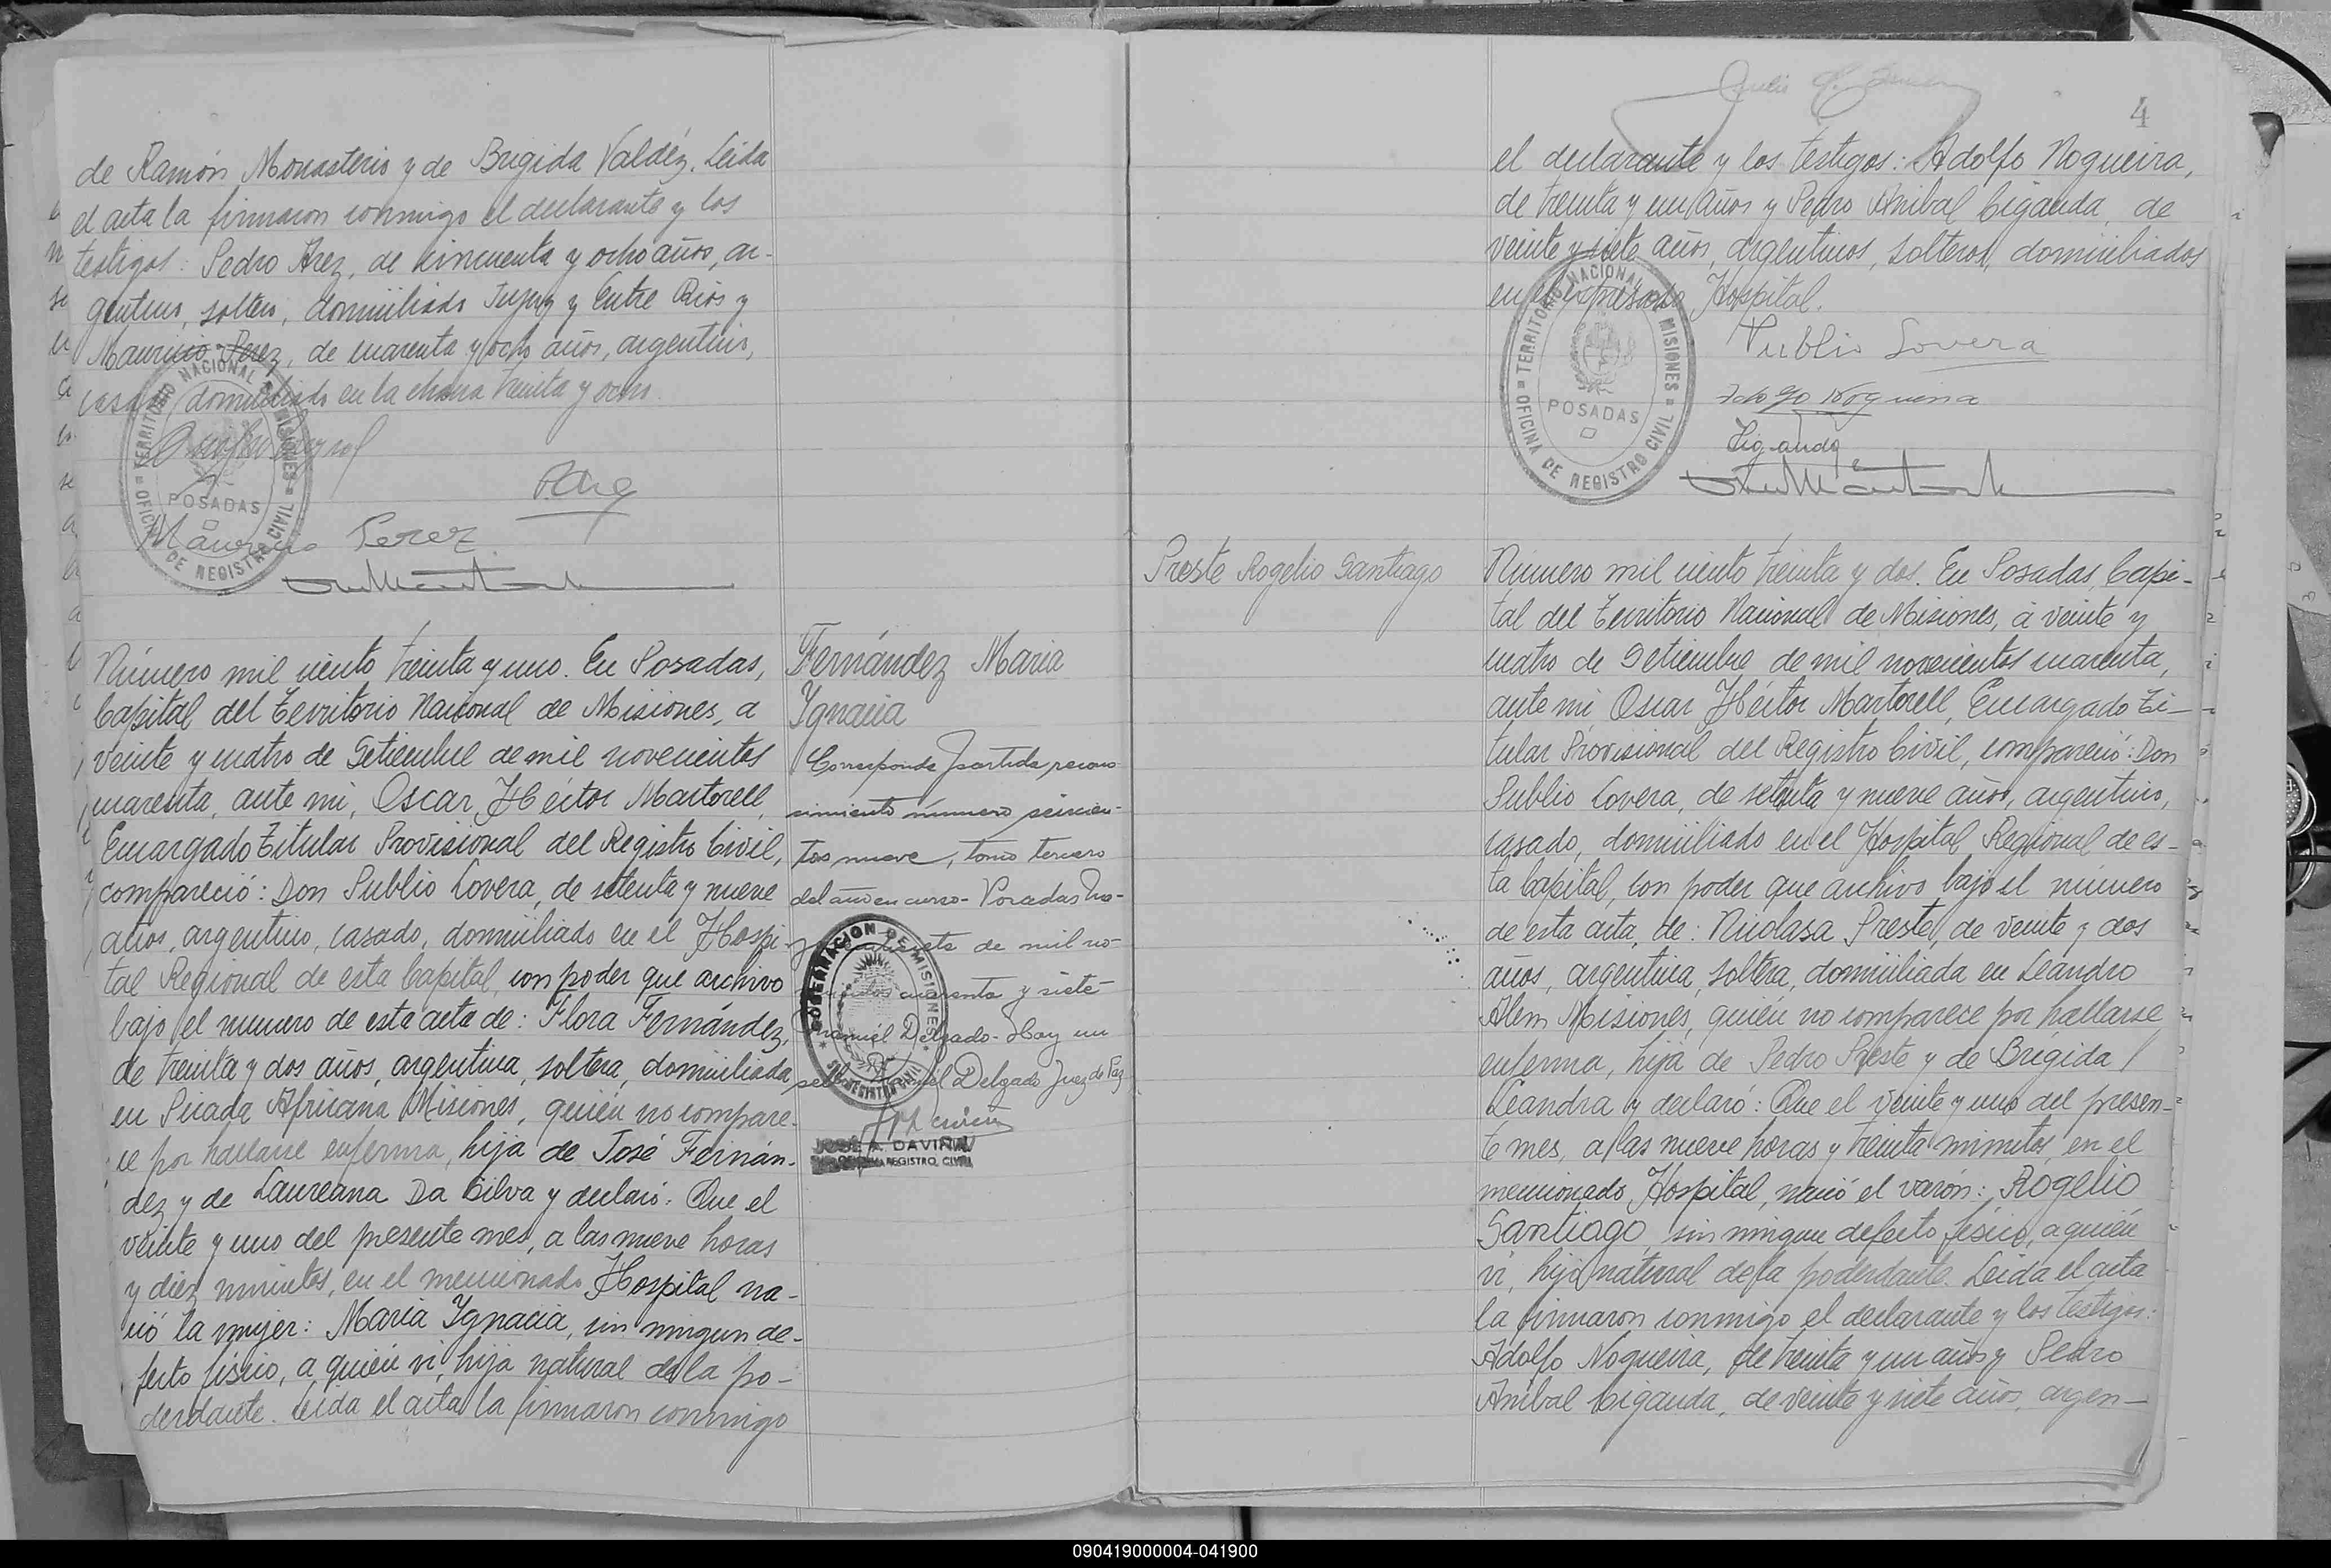 de Ramón Monasterio y de Brigida Valdéz. Leida
el acta la firmaron conmigo el declarante y los
testigos: Pedro Arez, de cincuenta y ocho años, ar-
gentino, soltero, domiciliado Jujuy y Entre Rios y
Mauricio Perez, de cuarenta y ocho años, argentino,
casado, domiciliado en la chacra treinta y ocho.
P. Arez
Mauricio Perez
TERRITORIO NACIONAL DE MISIONES
POSADAS
OFICINA DE REGISTRO CIVIL
Número mil ciento treinta y uno. En Posadas,
Capital del Territorio Nacional de Misiones, a
veinte y cuatro de Setiembre de mil novecientos
cuarenta, ante mi, Oscar Héctor Martorell,
Encargado Titular Provisional del Registro Civil,
compareció: Don Publio Lovera, de setenta y nueve
años, argentino, casado, domiciliado en el Hospi-
tal Regional de esta Capital, con poder que archivo
bajo el numero de esta acta de: Flora Fernández,
de treinta y dos años, argentina, soltera, domiciliada
en Picada Africana Misiones, quién no compare-
ce por hallarse enferma, hija de José Fernán-
dez y de Laureana Da Silva y declaró: Que el
veinte y uno del presente mes, a las nueve horas
y diez minutos, en el mencionado Hospital na-
ció la mujer: Maria Ygnacia, sin ningun de-
fecto fisico, a quién vi, hija natural de la po-
derdante. Leida el acta la firmaron conmigo
Fernández Maria
Ygnacia
Corresponde partida recono-
cimiento número seiscien-
tos nueve, tomo tercero
del año en curso- Posadas Ma-
yo siete de mil no-
vecientos cuarenta y siete-
Delgado- Hay un
sello Delgado Juez de Paz
GOBERNACION DE MISIONES
REGISTRO CIVIL
JOSÉ A. DAVIÑA
REGISTRO CIVIL
4
el declarante y los testigos: Adolfo Nogueira,
de treinta y un años y Pedro Anibal Ciganda, de
veinte y siete años, argentinos, solteros, domiciliados
en el expresado Hospital.
TERRITORIO NACIONAL DE MISIONES
POSADAS
OFICINA DE REGISTRO CIVIL
Publio Lovera
Adolfo Nogueira
Ciganda
Preste Rogelio Santiago
Número mil ciento treinta y dos. En Posadas, Capi-
tal del Territorio Nacional de Misiones, á veinte y
cuatro de Setiembre de mil novecientos cuarenta,
ante mi Oscar Héctor Martorell, Encargado Ti-
tular Provisional del Registro Civil, compareció: Don
Publio Lovera, de setenta y nueve años, argentino,
casado, domiciliado en el Hospital Regional de es-
ta Capital, con poder que archivo bajo el número
de esta acta, de: Nicolasa Preste, de veinte y dos
años, argentina, soltera, domiciliada en Leandro
Alem Misiones, quién no comparece por hallarse
enferma, hija de Pedro Preste y de Brigida
Leandra y declaró: Que el veinte y uno del presen-
te mes, a las nueve horas y treinta minutos, en el
mencionado Hospital, nació el varón: Rogelio
Santiago, sin ningun defecto fisico, a quién
vi, hijo natural de la poderdante. Leida el acta
la firmaron conmigo el declarante y los testigos:
Adolfo Nogueira, de treinta y un años y Pedro
Anibal Ciganda, de veinte y siete años, argen-
090419000004-041900